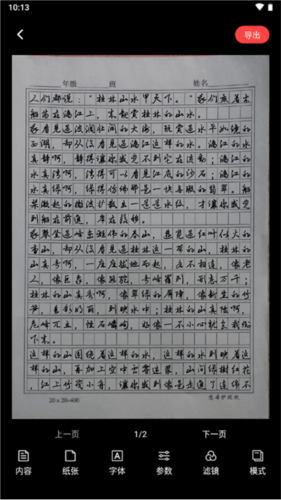 10:13
导出
年级 班 姓名
人们都说:"桂林山水甲天下。"我们乘着木
船荡在漓江上,来观赏桂林的山水。
我看见过波澜壮阔的大海,玩赏过水平如镜的
西湖,却从没看见过漓江这样的水。漓江的水
真静啊,静得让你感觉不到它在流动;漓江的
水真清啊,清得可以看见江底的沙石;漓江的
水真绿啊,绿得仿佛那是一块无瑕的翡翠。船
桨激起的微波扩散出一道道水纹,才让你感觉
到船在前进,岸在后移。
我攀登过峰峦雄伟的泰山,游览过红叶似火的
香山,却从没看见过桂林这一带的山。桂林的
山真奇啊,一座座拔地而起,各不相连,像老
人,像巨象,像骆驼,奇峰罗列,形态万千;
桂林的山真秀啊,像翠绿的屏障,像新生的竹
笋,色彩明丽,倒映水中;桂林的山真险啊,
危峰兀立,怪石嶙峋,好像一不小心就会栽倒
下来。
这样的山围绕着这样的水,这样的水倒映着这
样的山,再加上空中云雾迷蒙,山间绿树红花
,江上竹筏小舟,让你感到像是走进了连绵不
20×20=400
上一页 1/2 下一页
内容 纸张 字体 参数 滤镜 模式